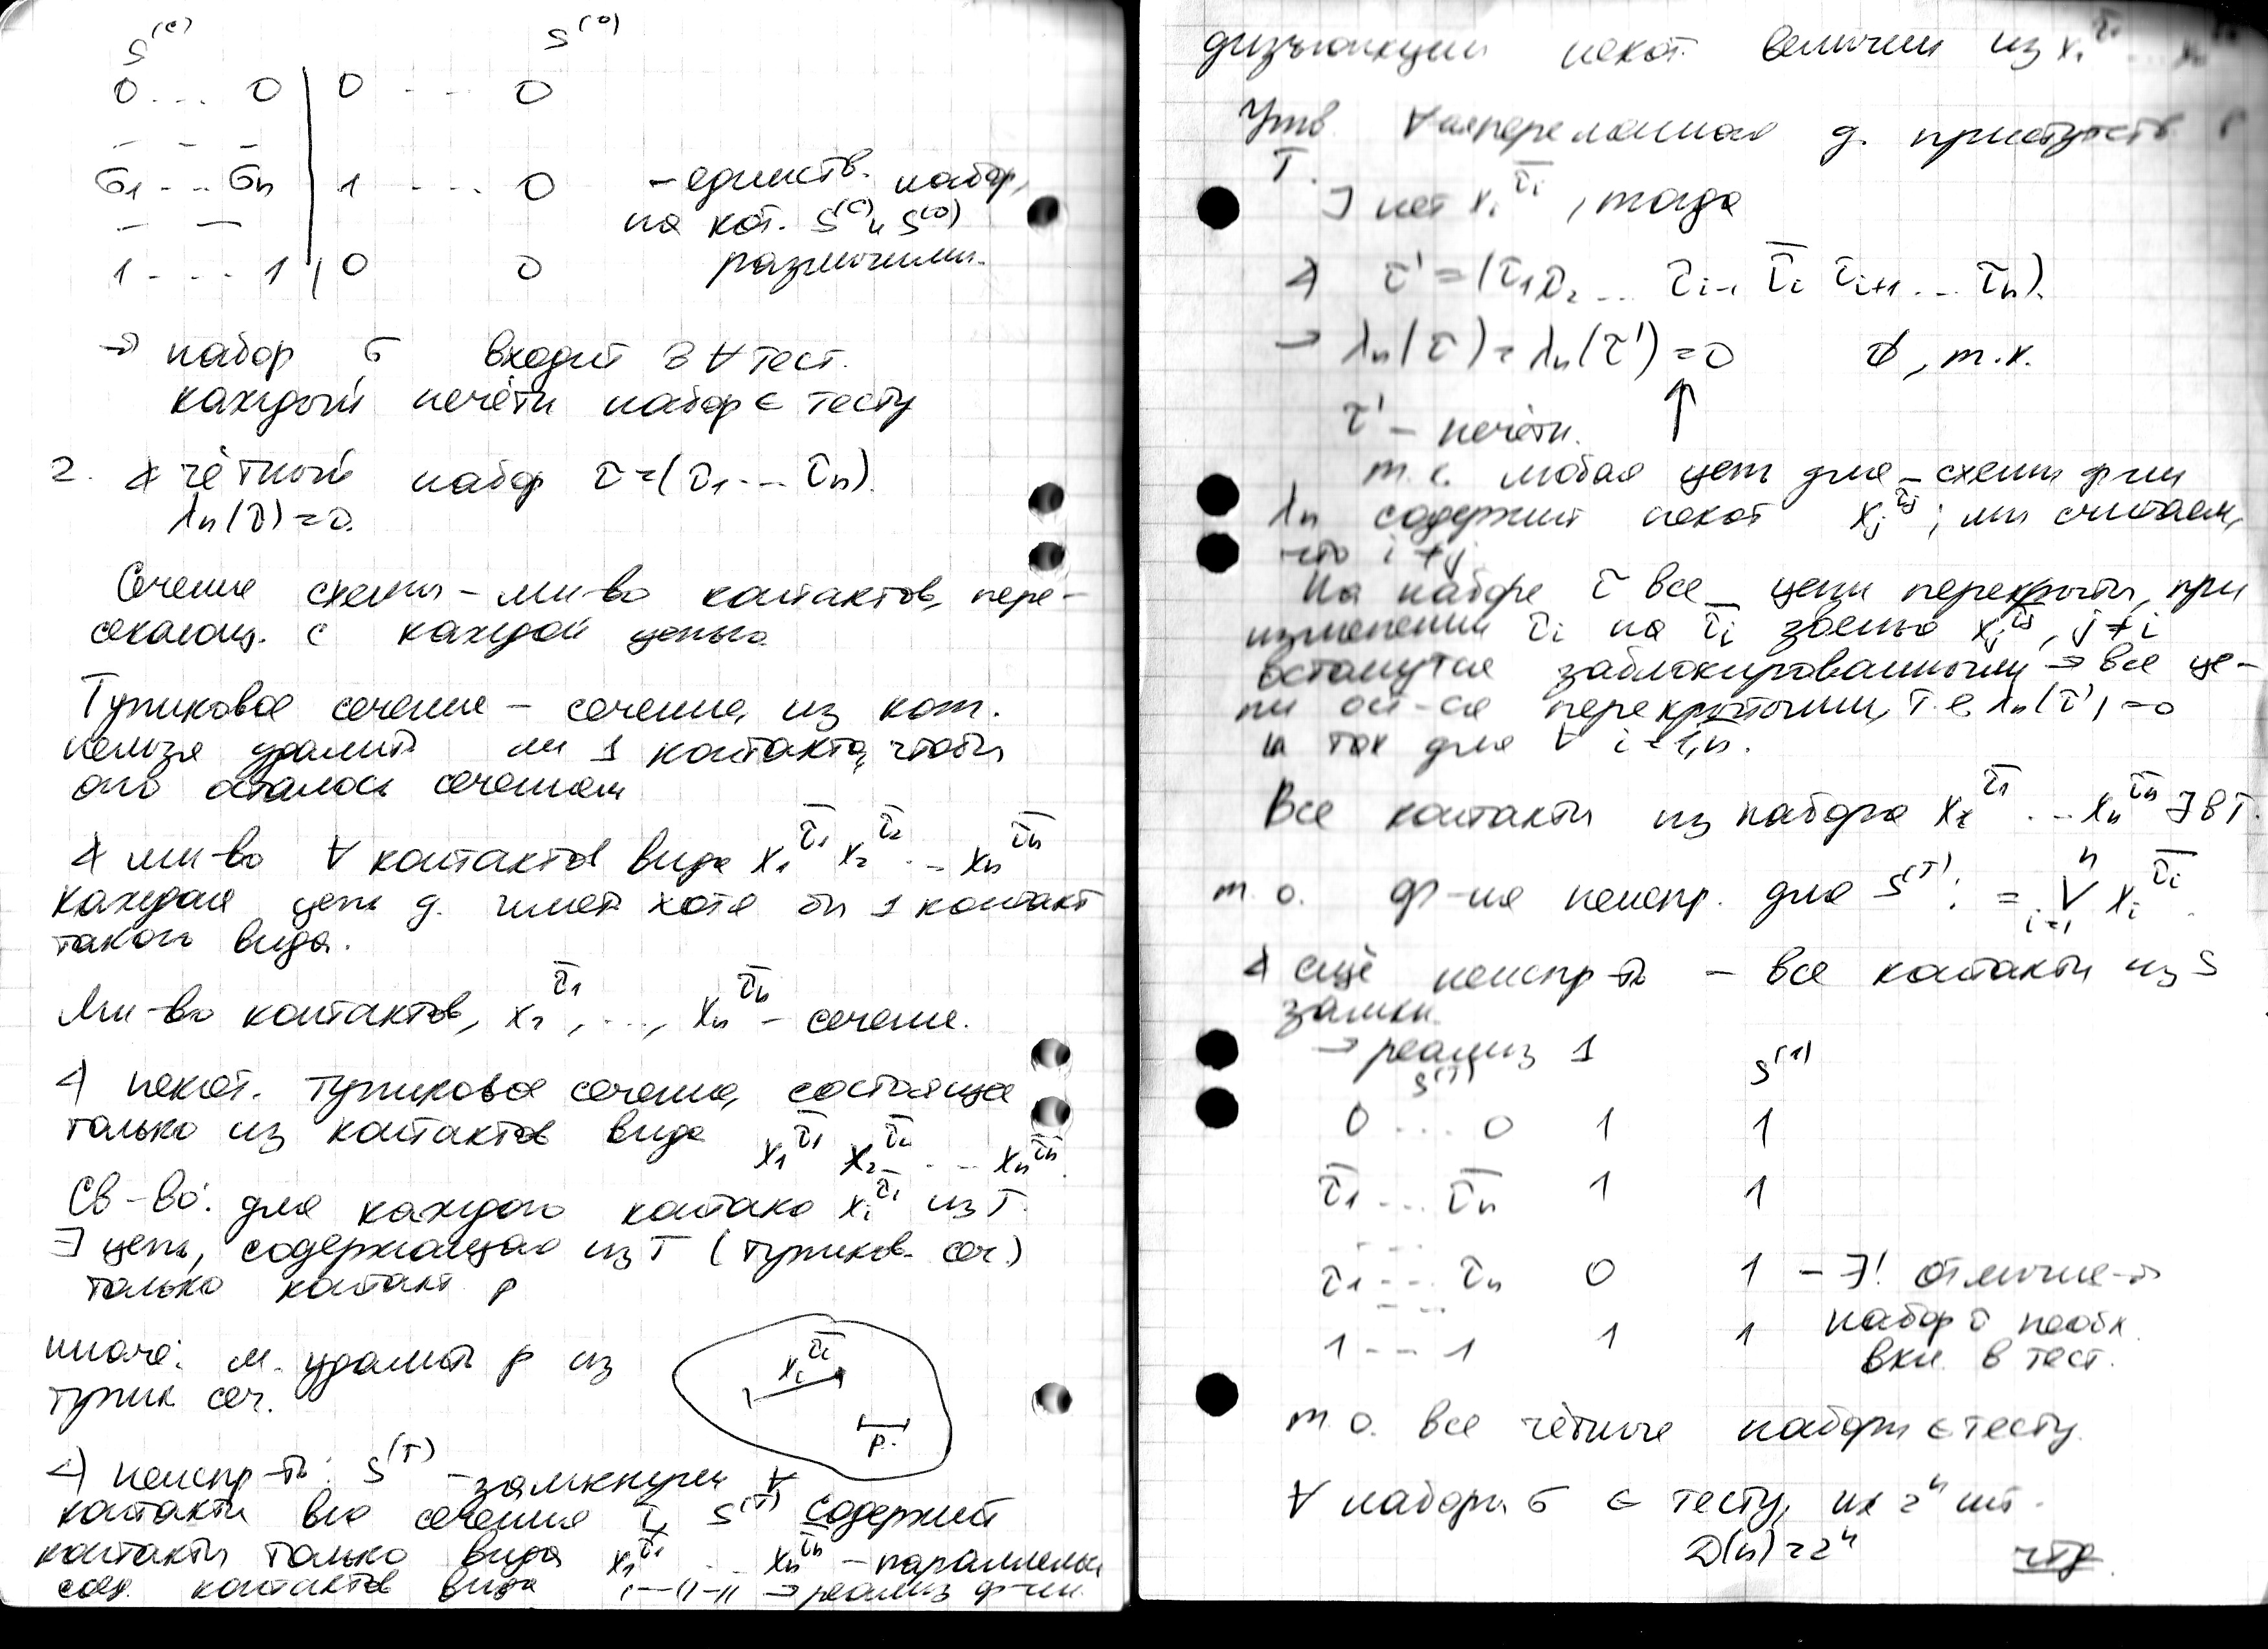 S^(c) S^(0)
0 . . . 0 | 0 - - - 0
– – –
σ1 - . . σn | 1 - . . . 0 – единств. набор,
– – на кот. S^(c) и S^(0)
1 - . . . 1 | 0 0 различимы.
→ набор σ входит в ∀ тест.
каждый нечётн набор ∈ тесту
2. ∢ чётный набор τ̃=(τ1 - .. τn).
λn(τ̃)=0.
Сечение схемы – мн-во контактов, пере-
секающ. с каждой цепью
Тупиковое сечение – сечение, из кот.
нельзя удалить ни 1 контакта, чтобы
оно осталось сечением
∢ мн-во ∀ контактов вида x1^τ̄1 x2^τ̄2 . - xn^τ̄n
каждая цепь д. иметь хотя бы 1 контакт
такого вида.
Мн-во контактов, x1^τ̄1, ..., xn^τ̄n – сечение.
∢ некот. тупиковое сечение, состоящее
только из контактов вида x1^τ̄1 x2^τ̄2 . - . xn^τ̄n.
Св-во: для каждого контакта xi^τ̄i из T.
∃ цепь, содержащая из T (тупиков. сеч.)
только контакт p
иначе: м. удалить p из
тупик сеч.
xi^τ̄i
p.
∢ неиспр-ть: S^(T) – замкнули ∀
контакты его сечения T, S^(T) содержит
контакты только вида x1^τ̄1 . . xn^τ̄n – параллельн
соед. контактов вида -//-//- → реализ ф-ии
дизъюнкции некот. величин из x1^τ̄1 ...
Утв. ∀ переменная д. присутств в
T.
] нет xi^τ̄i, тогда
∢ τ̃' = (τ1 τ2 ... τi-1 τ̄i τi+1 ... τn).
→ λn(τ̃) = λn(τ̃') = 0 , т.к.
↑
τ̃' – нечётн.
т.к. любая цепь для схемы ф-ии
λn содержит некот xj^τ̄j; мы считаем,
что i ≠ j
На наборе τ̃ все цепи перекрыты, при
изменении τi на τ̄i звенья xj^τ̄j, j ≠ i
останутся заблокированными → все це-
пи ост-ся перекрытыми, т.е. λn(τ̃') = 0
и так для ∀ i = 1,n.
Все контакты из набора x1^τ̄1 . . . xn^τ̄n ∃ в T.
т. о. ф-ия неиспр. для S^(T): = ⋁_{i=1}^{n} xi^τ̄i.
∢ ещё неиспр-ть – все контакты из S
замкн.
→ реализ 1
S^(T) S^(1)
0 . . . 0 1 1
τ̄1 . . . τ̄n 1 1
τ1 - . . τn 0 1 – ∃! отличие →
набор τ̃ необх.
1 - - 1 1 1 вкл. в тест.
т. о. все чётные наборы ∈ тесту.
∀ наборы σ ∈ тесту, их 2^n шт.
D(n) = 2^n чтд.